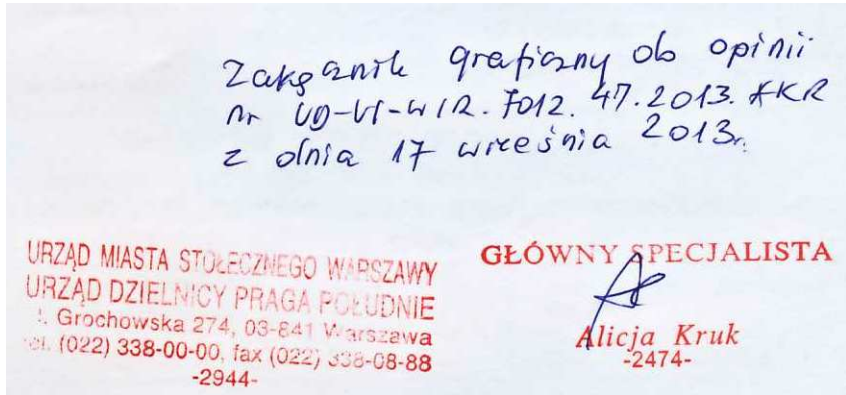 Załącznik graficzny do opinii
nr UD-VI-WIR.7012.47.2013.AKR
z dnia 17 września 2013r.
URZĄD MIASTA STOŁECZNEGO WARSZAWY
URZĄD DZIELNICY PRAGA POŁUDNIE
ul. Grochowska 274, 03-841 Warszawa
tel. (022) 338-00-00, fax (022) 338-08-88
-2944-
GŁÓWNY SPECJALISTA
Alicja Kruk
-2474-